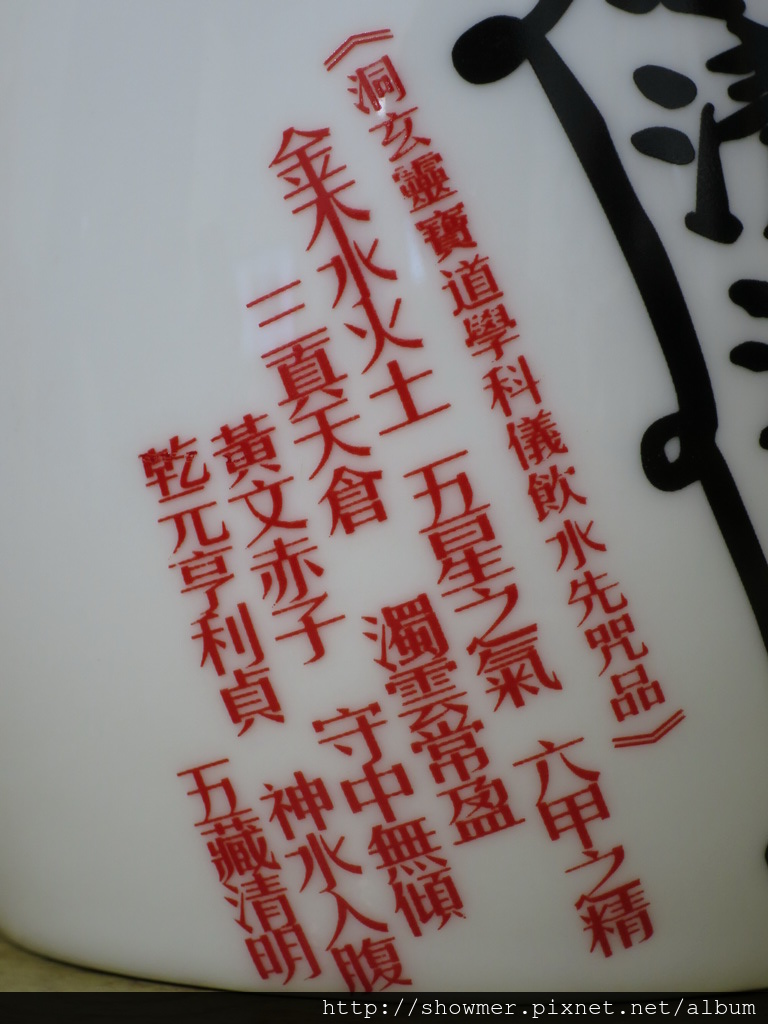 《洞玄靈寶道學科儀飲水先咒品》
金木水火土 五星之氣 六甲之精
三真天倉 濁雲常盈
黃文赤子 守中無傾
乾元亨利貞 神水入腹
五藏清明
http://showmer.pixnet.net/album